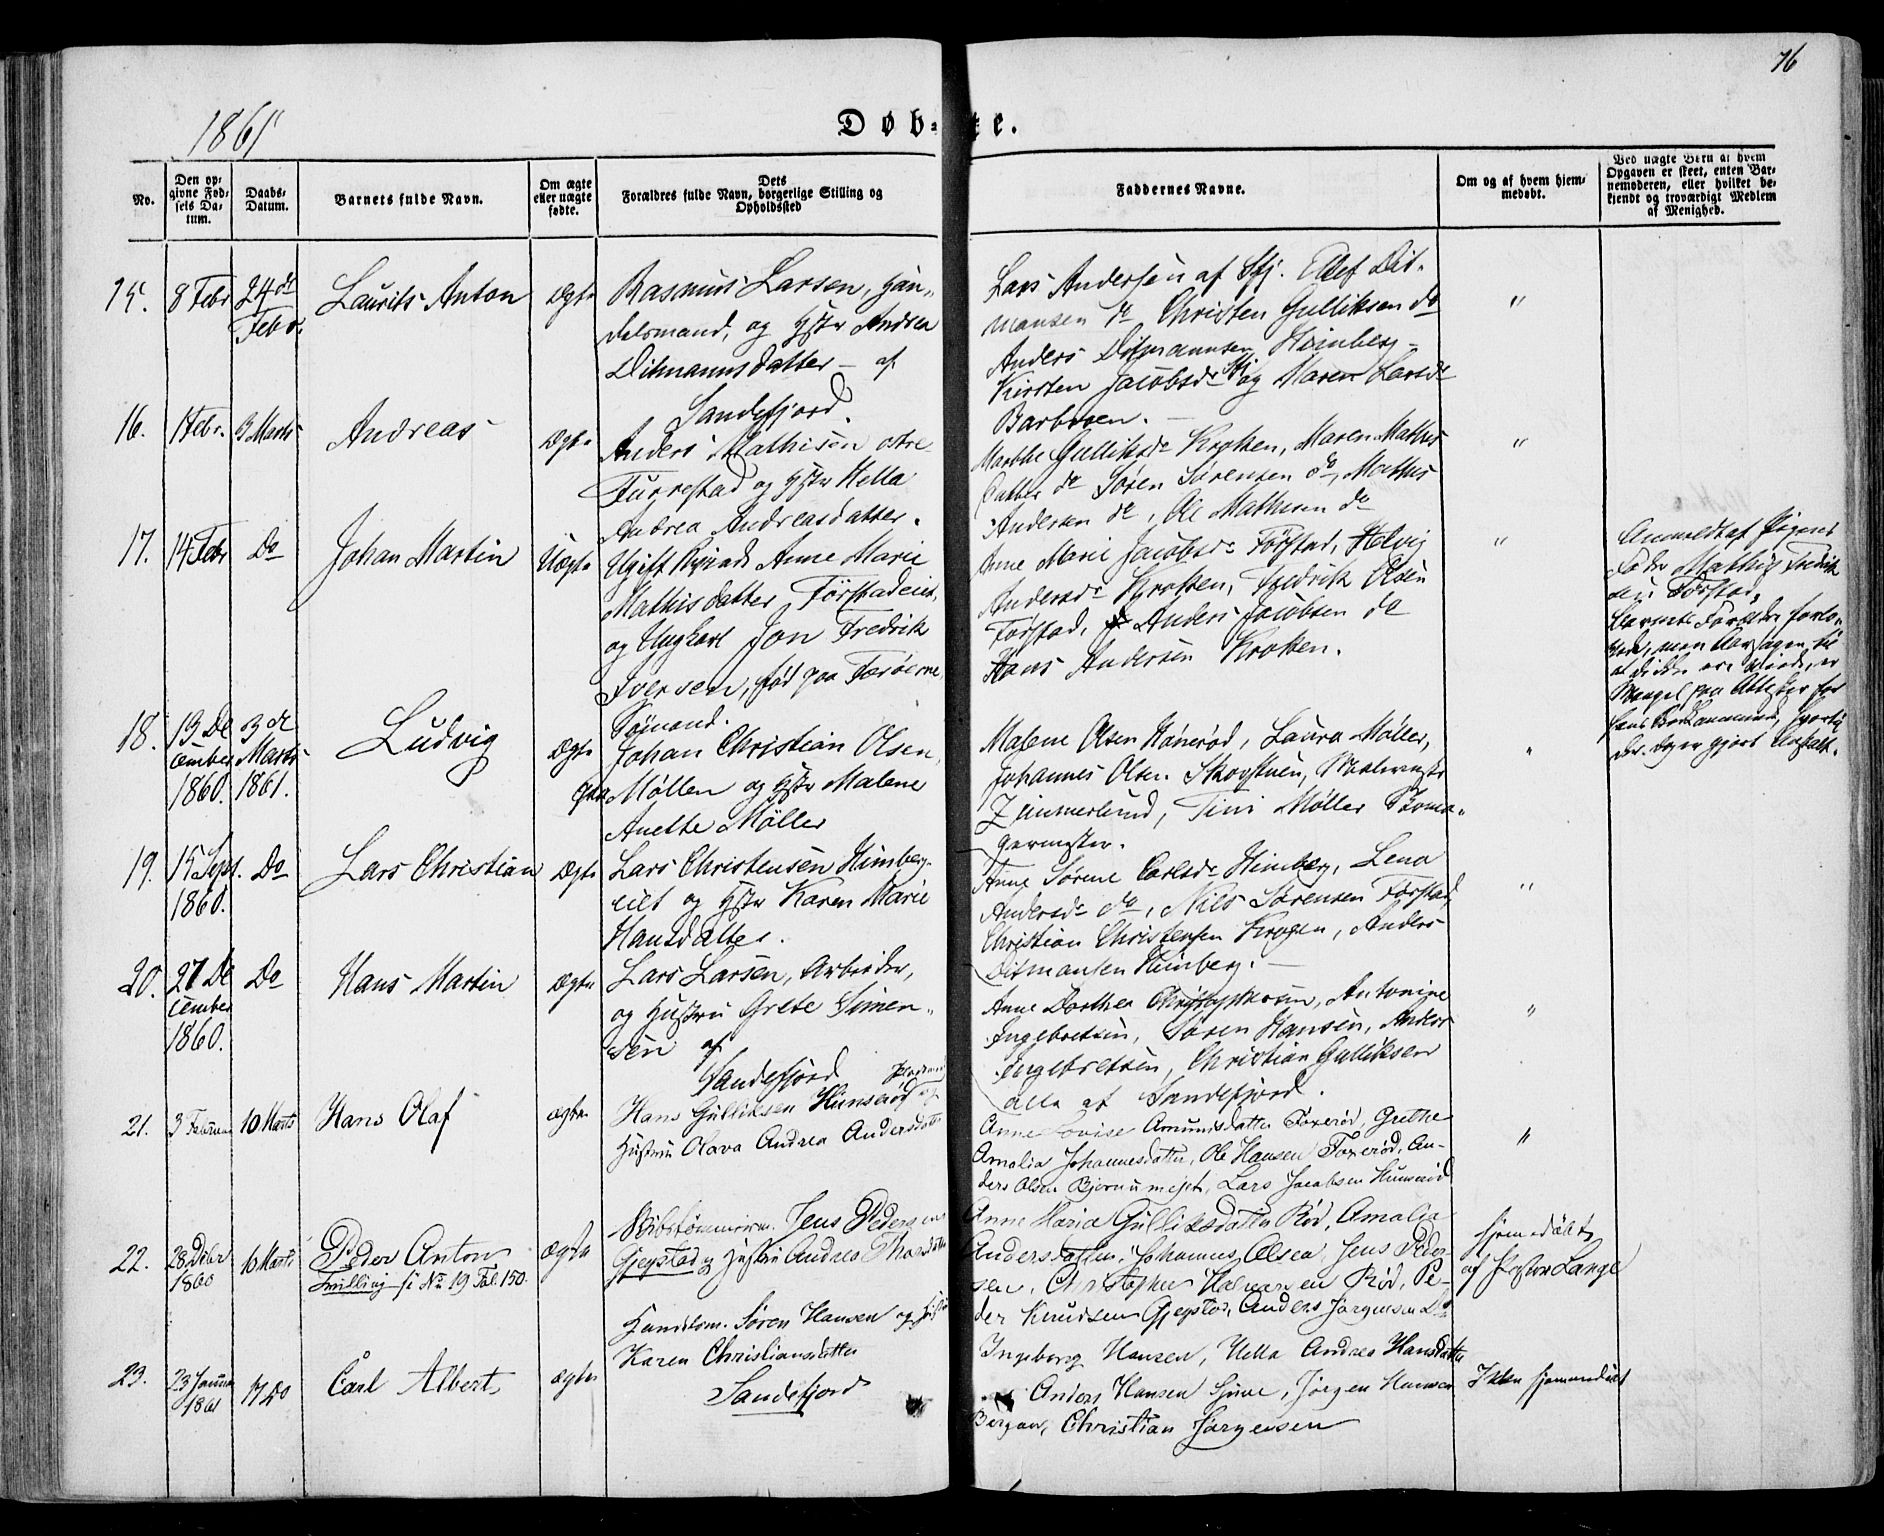 76
1861
Døb-te.
No.
Den op-
givne Fød-
sels Da-
tum.
Daabs-
Datum.
Barnets fulde Navn.
Om ægte
eller uægte
fødte.
Dets
Forældres fulde Navn, borgerlige Stilling og
Opholdssted
Faddernes Navne.
Om og af hvem hjem-
medøbt.
Ved uægte Børn af hvem
Opgaven er skeet, enten Bar-
nemoderen, eller hvilket be-
kjendt og troværdigt Medlem
af Menighed.
15. 8 Febr 24de Febr. Laurits Anton Ægte
Rasmus Larsen, Han-
delsmand, og Hstr Andrea
Ditmannsdatter - af
Sandefjord.
Lars Andersen af Sfj. Ellef Dit-
mansen do Christen Gulliksen do
Anders Ditmannsen Himberg -
Kirsten Jacobsdr Sfj og Maren Larsdr
"
16. 1 Febr. 3 Marts Andreas Ægte
Anders Mathisen østre
Fuxrestad og Hstr Hella
Andrea Andreasdatter.
Marthe Gulliksdr Krokken, Maren Mathis
datter do Søren Sørensen do, Mathis
Andersen do, Ole Mathisen do
"
17. 14 Febr Do Johan Martin Uægte
Ugift Anne Marie
Mathisdatter Førstadeiet,
og Ungkarl Jon Fredrik
Iversen, født paa Færøerne,
Sømand.
Anne Marie Jacobsdr Førstad, Helvig
Andersdr Krokken, Fredrik Olsen
Førstad, Anders Jacobsen do
Hans Andersen Krokken.
"
Anmeldt af Pigens
Fader Mathis Fredrik
sen Førstad,
Barnets Forældre forlo-
vede, men Aarsagen til
at de ikke ere viede, er
Mangel paa Attester for
18. 13 De
cember
1860. 3de
Marts
1861. Ludvig Ægte
Johan Christian Olsen,
Møllen og Hstr Malene
Anette Møller
Malene Olsen Hønerød, Laura Møller,
Johannes Olsen Skovstuen,
Zimmerlund, Tini Møller
"
19. 15 Sept.
1860. Do Lars Christian Ægte
Lars Christensen Himberg-
eiet og Hstr Karen Marie
Hansdatter.
Anne Sørine Carlsdr Himberg, Lena
Andersdr do, Niels Sørensen Førstad,
Christian Christensen Krogen, Anders
Ditmansen Himberg. -
"
20. 27 De
cember
1860. Do Hans Martin Ægte
Lars Larsen, Arbeider,
og Hustru Grete Simen-
sen af
Sandefjord
Anne Dorthea Christophersen, Antonine
Ingebretsen, Søren Hansen, Anders
Ingebretsen, Christian Gulliksen
alle af Sandefjord.
"
21. 3 Februar 10 Marts Hans Olaf ægte
Hans Gulliksen Hunserød og
Hustru Olava Andrea Andersdatter
Anne Lovise Amundsdatter Foxerød, Grethe
Amalia Johannesdatter, Ole Hansen Foxerød, An-
ders Olsen Bjerunmejet, Lars Jacobsen Hunserød
"
22. 28 Decbr
1860 10 Marts Peder Anton
Tvilling se No 19 Fol. 150. ægte
Skibstømmerm. Jens Pedersen
Gjegstad og Hustru Andrea Thorsdatter
Anne Maria Gulliksdatter Rød, Amalia
Andersdatter, Johannes Olsen, Jens Peder-
sen, Christopher Halvorsen Rød, Pe-
der Knudsen Gjegstad, Anders Jørgensen Do
Hjemmedøbt
af Pastor Lange
23. 23 Januar
1861 17 Do Carl Albert ægte
Handelsm. Søren Hansen og Hustru
Karen Christiansdatter
Sandefjord
Ingeborg Hansen, Hella Andrea Hansdatter
Anders Hansen Hjune, Jørgen Hansen
Bergan, Christian Jørgensen
Ikke hjemmedøbt